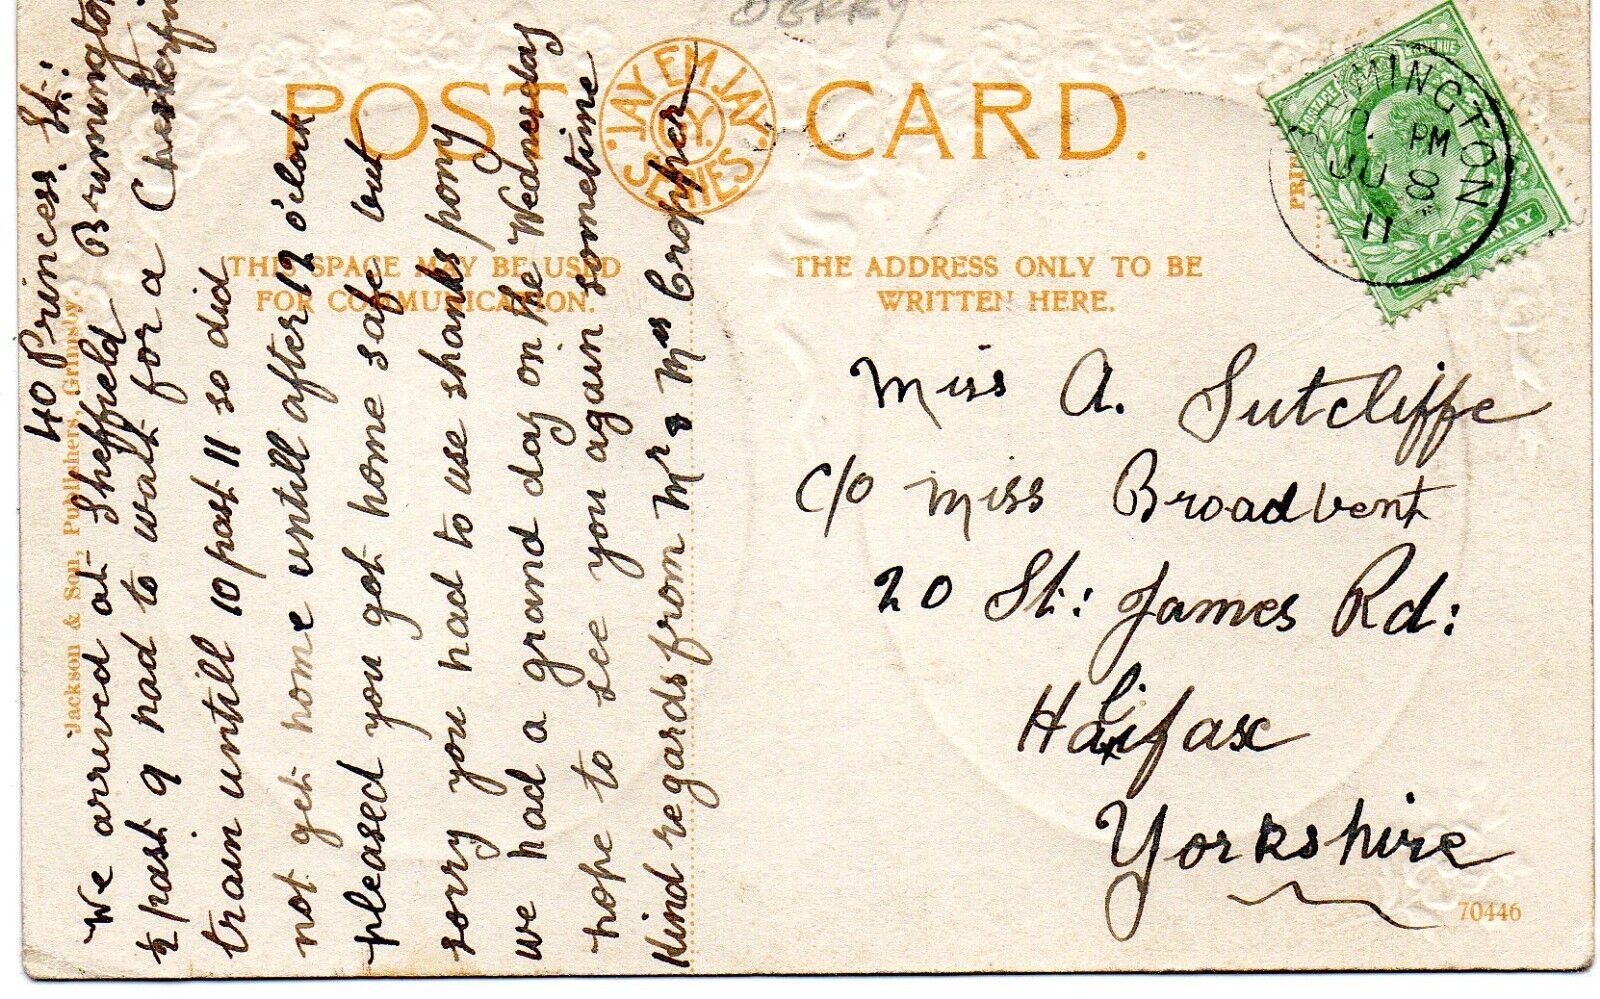 DERRY
POST CARD.
JAY EM JAY
SERIES
THIS SPACE MAY BE USED
FOR COMMUNICATION.
THE ADDRESS ONLY TO BE
WRITTEN HERE.
Jackson & Son, Publishers, Grimsby.
40 Princess. St:
Brimington
We arrived at Sheffield
½ past 9 had to wait for a Chesterfi
train untill 10 past 11 so did
not get home untill after 12 o'clock
pleased you got home safe but
sorry you had to use shanks pony
we had a grand day on the Wednesday
hope to see you again sometime
Kind regards from Mr & Mrs Cropper
PRIN
POSTAGE
REVENUE
HALFPENNY
BRIMINGTON
9. PM
JU 8
11
Miss A. Sutcliffe
C/O Miss Broadbent
20 St: James Rd:
Halifax
Yorkshire
70446